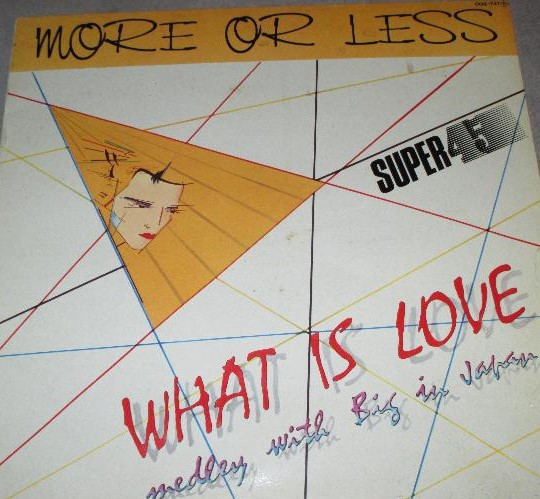 MORE OR LESS
SUPER 45
WHAT IS LOVE
medley with Big in Japan